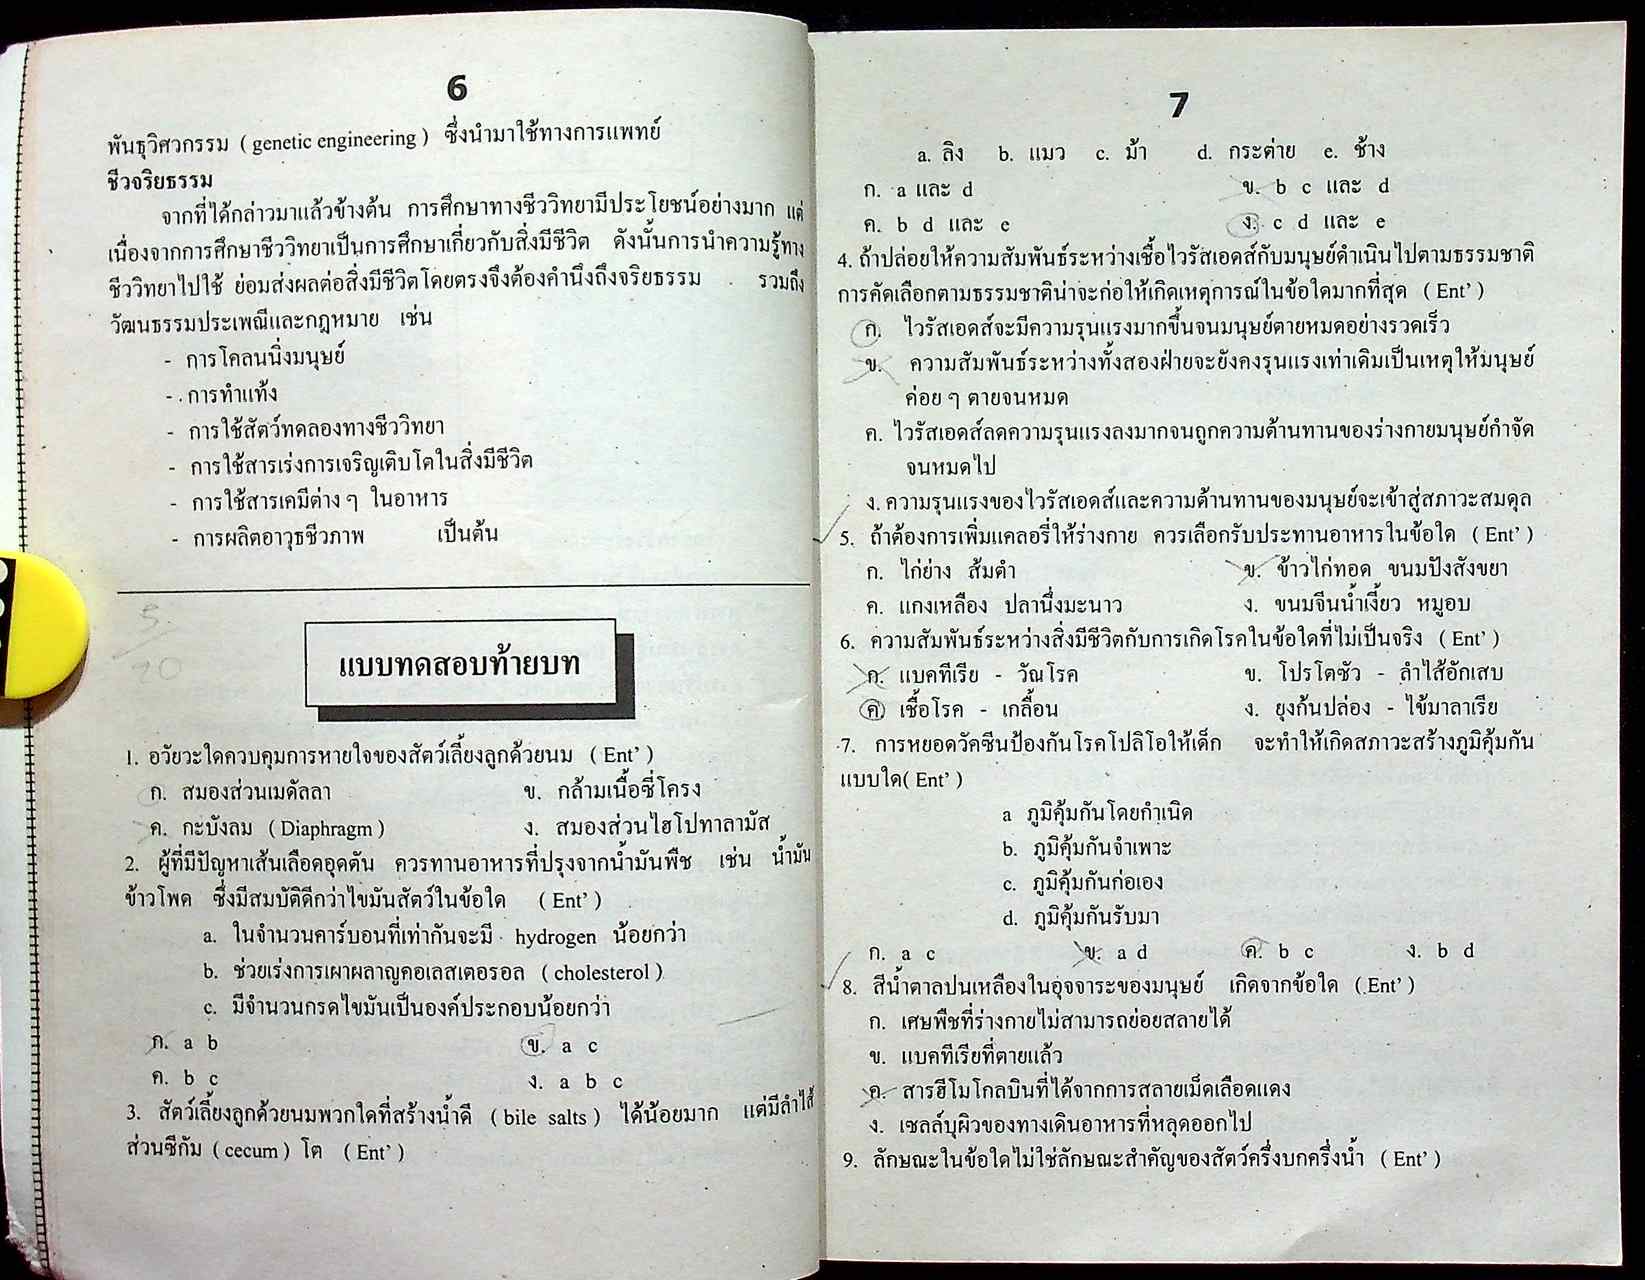 6
พันธุวิศวกรรม ( genetic engineering ) ซึ่งนำมาใช้ทางการแพทย์
ชีวจริยธรรม
จากที่ได้กล่าวมาแล้วข้างต้น การศึกษาทางชีววิทยามีประโยชน์อย่างมาก แต่
เนื่องจากการศึกษาชีววิทยาเป็นการศึกษาเกี่ยวกับสิ่งมีชีวิต ดังนั้นการนำความรู้ทาง
ชีววิทยาไปใช้ ย่อมส่งผลต่อสิ่งมีชีวิตโดยตรงจึงต้องคำนึงถึงจริยธรรม รวมถึง
วัฒนธรรมประเพณีและกฎหมาย เช่น
- การโคลนนิ่งมนุษย์
- การทำแท้ง
- การใช้สัตว์ทดลองทางชีววิทยา
- การใช้สารเร่งการเจริญเติบโตในสิ่งมีชีวิต
- การใช้สารเคมีต่าง ๆ ในอาหาร
- การผลิตอาวุธชีวภาพ เป็นต้น
5
20
แบบทดสอบท้ายบท
1. อวัยวะใดควบคุมการหายใจของสัตว์เลี้ยงลูกด้วยนม ( Ent' )
ก. สมองส่วนเมดัลลา ข. กล้ามเนื้อซี่โครง
ค. กะบังลม ( Diaphragm ) ง. สมองส่วนไฮโปทาลามัส
2. ผู้ที่มีปัญหาเส้นเลือดอุดตัน ควรทานอาหารที่ปรุงจากน้ำมันพืช เช่น น้ำมัน
ข้าวโพด ซึ่งมีสมบัติดีกว่าไขมันสัตว์ในข้อใด ( Ent' )
a. ในจำนวนคาร์บอนที่เท่ากันจะมี hydrogen น้อยกว่า
b. ช่วยเร่งการเผาผลาญคอเลสเตอรอล ( cholesterol )
c. มีจำนวนกรดไขมันเป็นองค์ประกอบน้อยกว่า
ก. a b ข. a c
ค. b c ง. a b c
3. สัตว์เลี้ยงลูกด้วยนมพวกใดที่สร้างน้ำดี ( bile salts ) ได้น้อยมาก แต่มีลำไส้
ส่วนซีกัม ( cecum ) โต ( Ent' )
7
a. ลิง b. แมว c. ม้า d. กระต่าย e. ช้าง
ก. a และ d ข. b c และ d
ค. b d และ e ง. c d และ e
4. ถ้าปล่อยให้ความสัมพันธ์ระหว่างเชื้อไวรัสเอดส์กับมนุษย์ดำเนินไปตามธรรมชาติ
การคัดเลือกตามธรรมชาติน่าจะก่อให้เกิดเหตุการณ์ในข้อใดมากที่สุด ( Ent' )
ก. ไวรัสเอดส์จะมีความรุนแรงมากขึ้นจนมนุษย์ตายหมดอย่างรวดเร็ว
ข. ความสัมพันธ์ระหว่างทั้งสองฝ่ายจะยังคงรุนแรงเท่าเดิมเป็นเหตุให้มนุษย์
ค่อย ๆ ตายจนหมด
ค. ไวรัสเอดส์ลดความรุนแรงลงมากจนถูกความต้านทานของร่างกายมนุษย์กำจัด
จนหมดไป
ง. ความรุนแรงของไวรัสเอดส์และความต้านทานของมนุษย์จะเข้าสู่สภาวะสมดุล
5. ถ้าต้องการเพิ่มแคลอรี่ให้ร่างกาย ควรเลือกรับประทานอาหารในข้อใด ( Ent' )
ก. ไก่ย่าง ส้มตำ ข. ข้าวไก่ทอด ขนมปังสังขยา
ค. แกงเหลือง ปลานึ่งมะนาว ง. ขนมจีนน้ำเงี้ยว หมูอบ
6. ความสัมพันธ์ระหว่างสิ่งมีชีวิตกับการเกิดโรคในข้อใดที่ไม่เป็นจริง ( Ent' )
ก. แบคทีเรีย - วัณโรค ข. โปรโตซัว - ลำไส้อักเสบ
ค. เชื้อโรค - เกลื้อน ง. ยุงก้นปล่อง - ไข้มาลาเรีย
7. การหยอดวัคซีนป้องกันโรคโปลิโอให้เด็ก จะทำให้เกิดสภาวะสร้างภูมิคุ้มกัน
แบบใด( Ent' )
a ภูมิคุ้มกันโดยกำเนิด
b. ภูมิคุ้มกันจำเพาะ
c. ภูมิคุ้มกันก่อเอง
d. ภูมิคุ้มกันรับมา
ก. a c ข. a d ค. b c ง. b d
8. สีน้ำตาลปนเหลืองในอุจจาระของมนุษย์ เกิดจากข้อใด ( Ent' )
ก. เศษพืชที่ร่างกายไม่สามารถย่อยสลายได้
ข. แบคทีเรียที่ตายแล้ว
ค. สารฮีโมโกลบินที่ได้จากการสลายเม็ดเลือดแดง
ง. เซลล์บุผิวของทางเดินอาหารที่หลุดออกไป
9. ลักษณะในข้อใดไม่ใช่ลักษณะสำคัญของสัตว์ครึ่งบกครึ่งน้ำ ( Ent' )